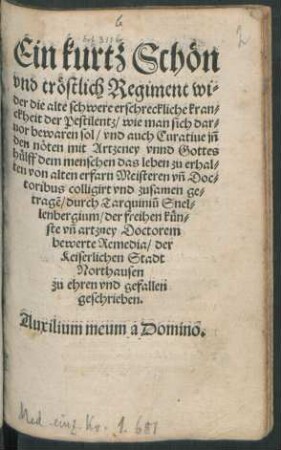 6
2
Ein kurtz Schön
vnd tröstlich Regiment wi-
der die alte schwere erschreckliche kran-
ckheit der Pestilentz / wie man sich dar-
uor bewaren sol / vnd auch Curatiue jn̄
den nöten mit Artzeney vnnd Gottes
hülff dem menschen das leben zu erhal-
ten von alten erfarn Meisteren vn̄ Doc-
toribus colligirt vnd zusamen ge-
tragē / durch Tarquiniū Snel-
lenbergium / der freihen kün-
ste vn̄ artzney Doctorem
bewerte Remedia / der
Keiserlichen Stadt
Northausen
zu ehren vnd gefallen
geschrieben.
Auxilium meum à Domino.
Med. eing. Kr. 1. 681